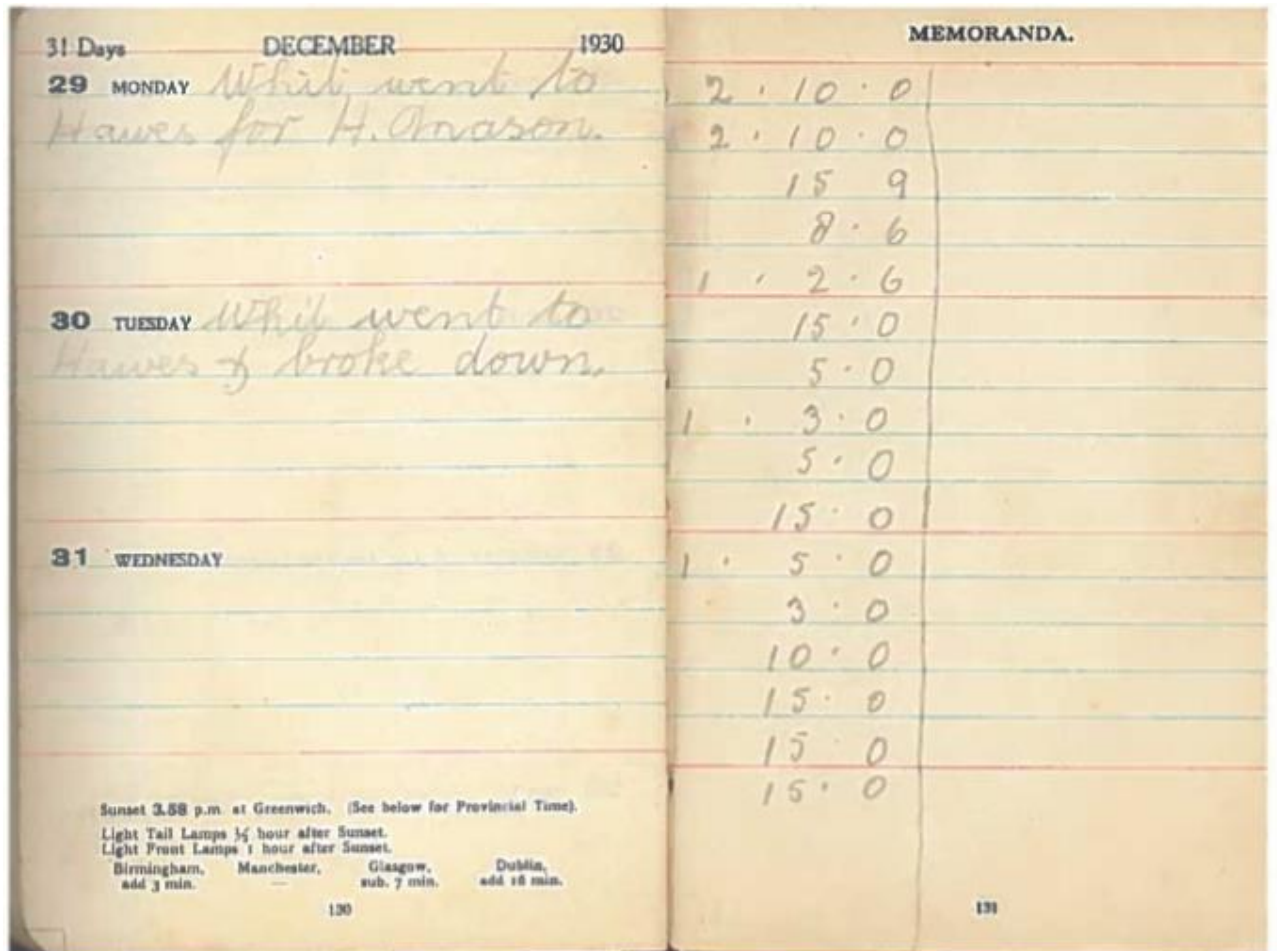 31 Days DECEMBER 1930
29 MONDAY Whit went to
Hawes for H. Mason.
30 TUESDAY Whit went to
Hawes & broke down.
31 WEDNESDAY
Sunset 3.58 p.m. at Greenwich. (See below for Provincial Time).
Light Tail Lamps ½ hour after Sunset.
Light Front Lamps 1 hour after Sunset.
Birmingham, Manchester, Glasgow, Dublin,
add 3 min. — sub. 7 min. add 18 min.
130
MEMORANDA.
2 . 10 . 0
2 . 10 . 0
15 9
8 . 6
1 . 2 . 6
15 . 0
5 . 0
1 . 3 . 0
5 . 0
15 . 0
1 . 5 . 0
3 . 0
10 . 0
15 . 0
15 . 0
15 . 0
131